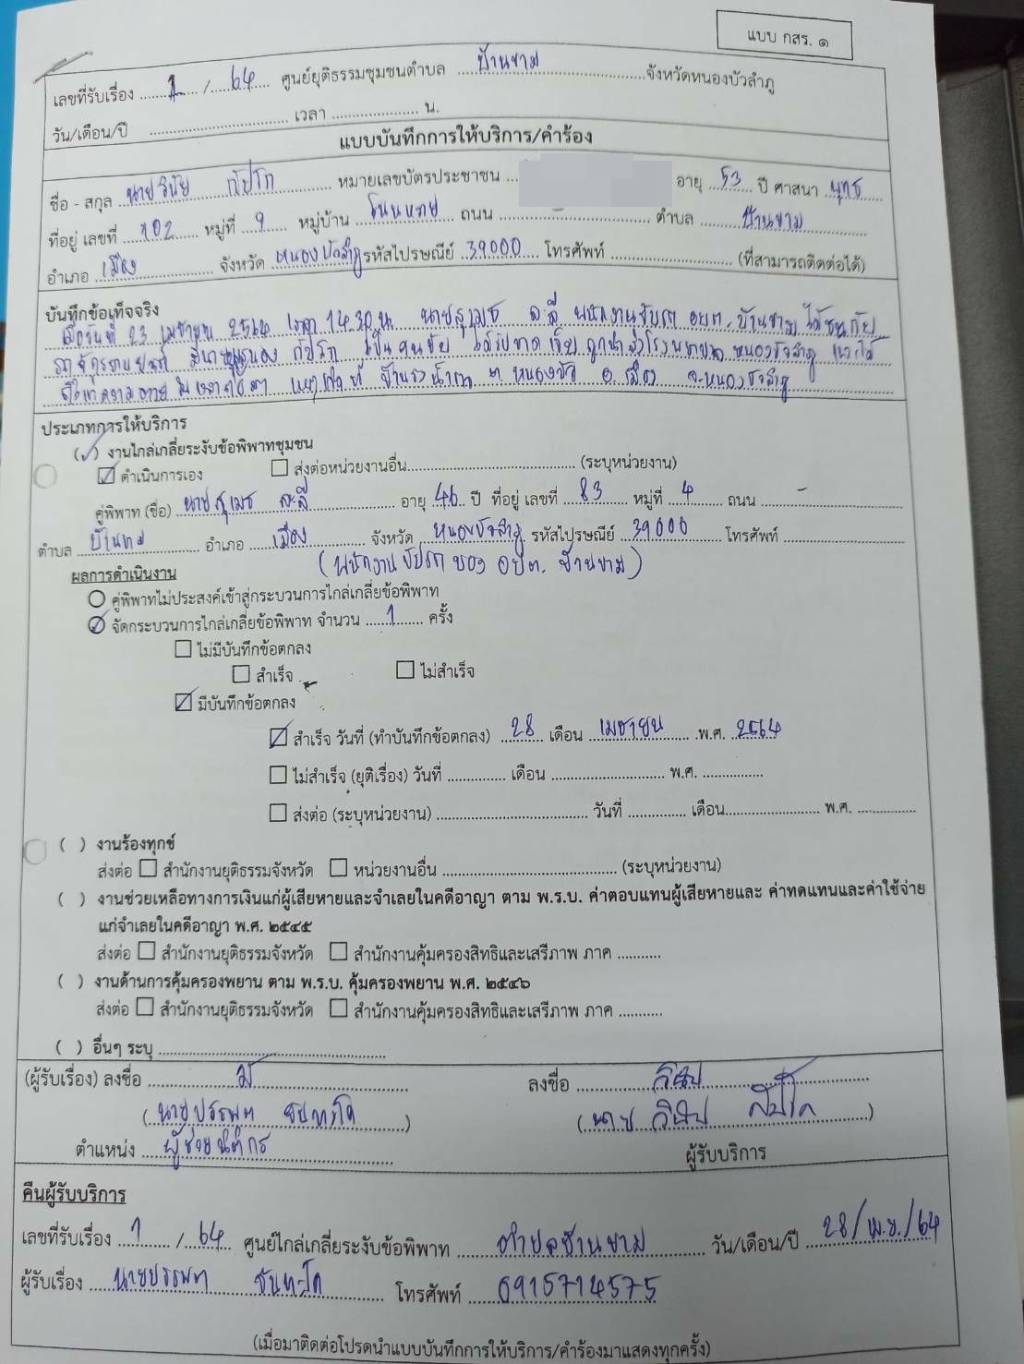 แบบ กสร. ๑
เลขที่รับเรื่อง 1 / 64 ศูนย์ยุติธรรมชุมชนตำบล บ้านขาม จังหวัดหนองบัวลำภู
วัน/เดือน/ปี เวลา น.
แบบบันทึกการให้บริการ/คำร้อง
ชื่อ - สกุล นายวินัย หมายเลขบัตรประชาชน อายุ 53 ปี ศาสนา พุทธ
ที่อยู่ เลขที่ 102 หมู่ที่ 9 หมู่บ้าน โนนหวาย ถนน ตำบล บ้านขาม
อำเภอ เมือง จังหวัด หนองบัวลำภู รหัสไปรษณีย์ 39000 โทรศัพท์ (ที่สามารถติดต่อได้)
บันทึกข้อเท็จจริง
เมื่อวันที่ 23 เมษายน 2564 เวลา 14.30 น. นายสุเมธ ละลี พนักงานขับรถ อบต. บ้านขาม ได้ชนกับ
รถจักรยานยนต์ มีนาย เป็นคนขับ ได้รับบาดเจ็บ ถูกนำส่งโรงพยาบาลหนองบัวลำภู
ต. หนองบัว อ. เมือง จ. หนองบัวลำภู
ประเภทการให้บริการ
(✓) งานไกล่เกลี่ยระงับข้อพิพาทชุมชน
☑ ดำเนินการเอง ☐ ส่งต่อหน่วยงานอื่น (ระบุหน่วยงาน)
คู่พิพาท (ชื่อ) นายสุเมธ ละลี อายุ 46 ปี ที่อยู่ เลขที่ 83 หมู่ที่ 4 ถนน -
ตำบล บ้านขาม อำเภอ เมือง จังหวัด หนองบัวลำภู รหัสไปรษณีย์ 39000 โทรศัพท์
ผลการดำเนินงาน (พนักงานขับรถ ของ อบต. บ้านขาม)
○ คู่พิพาทไม่ประสงค์เข้าสู่กระบวนการไกล่เกลี่ยข้อพิพาท
จัดกระบวนการไกล่เกลี่ยข้อพิพาท จำนวน 1 ครั้ง
☐ ไม่มีบันทึกข้อตกลง
☐ สำเร็จ ☐ ไม่สำเร็จ
☑ มีบันทึกข้อตกลง
☑ สำเร็จ วันที่ (ทำบันทึกข้อตกลง) 28 เดือน เมษายน พ.ศ. 2564
☐ ไม่สำเร็จ (ยุติเรื่อง) วันที่ เดือน พ.ศ.
☐ ส่งต่อ (ระบุหน่วยงาน) วันที่ เดือน พ.ศ.
( ) งานร้องทุกข์
ส่งต่อ ☐ สำนักงานยุติธรรมจังหวัด ☐ หน่วยงานอื่น (ระบุหน่วยงาน)
( ) งานช่วยเหลือทางการเงินแก่ผู้เสียหายและจำเลยในคดีอาญา ตาม พ.ร.บ. ค่าตอบแทนผู้เสียหายและ ค่าทดแทนและค่าใช้จ่าย
แก่จำเลยในคดีอาญา พ.ศ. ๒๕๔๕
ส่งต่อ ☐ สำนักงานยุติธรรมจังหวัด ☐ สำนักงานคุ้มครองสิทธิและเสรีภาพ ภาค
( ) งานด้านการคุ้มครองพยาน ตาม พ.ร.บ. คุ้มครองพยาน พ.ศ. ๒๕๔๖
ส่งต่อ ☐ สำนักงานยุติธรรมจังหวัด ☐ สำนักงานคุ้มครองสิทธิและเสรีภาพ ภาค
( ) อื่นๆ ระบุ
(ผู้รับเรื่อง) ลงชื่อ ลงชื่อ วินัย
(นายบรรพต) (นาย วินัย)
ตำแหน่ง ผู้ช่วยนิติกร ผู้รับบริการ
คืนผู้รับบริการ
เลขที่รับเรื่อง 1 / 64 ศูนย์ไกล่เกลี่ยระงับข้อพิพาท ตำบลบ้านขาม วัน/เดือน/ปี 28/เม.ย./64
ผู้รับเรื่อง นายบรรพต โทรศัพท์ 0915714575
(เมื่อมาติดต่อโปรดนำแบบบันทึกการให้บริการ/คำร้องมาแสดงทุกครั้ง)